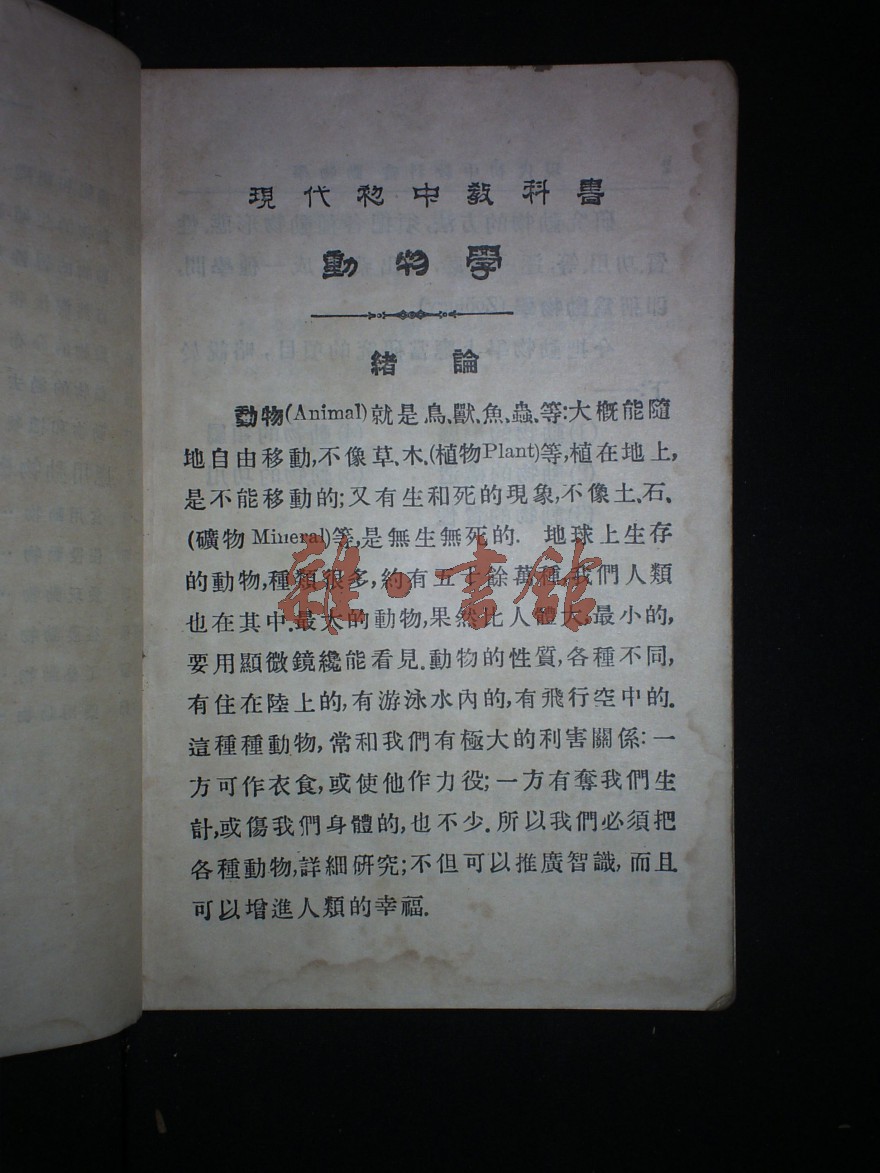 現代初中教科書
動物學
緒論
動物(Animal)就是鳥、獸、魚、蟲、等:大概能隨
地自由移動,不像草、木、(植物Plant)等,植在地上,
是不能移動的;又有生和死的現象,不像土、石、
(礦物 Mineral)等,是無生無死的. 地球上生存
的動物,種類很多,約有五十餘萬種,我們人類
也在其中.最大的動物,果然比人體大;最小的,
要用顯微鏡纔能看見.動物的性質,各種不同,
有住在陸上的,有游泳水內的,有飛行空中的.
這種種動物,常和我們有極大的利害關係:一
方可作衣食,或使他作力役;一方有奪我們生
計,或傷我們身體的,也不少.所以我們必須把
各種動物,詳細研究;不但可以推廣智識,而且
可以增進人類的幸福.
雜·書館